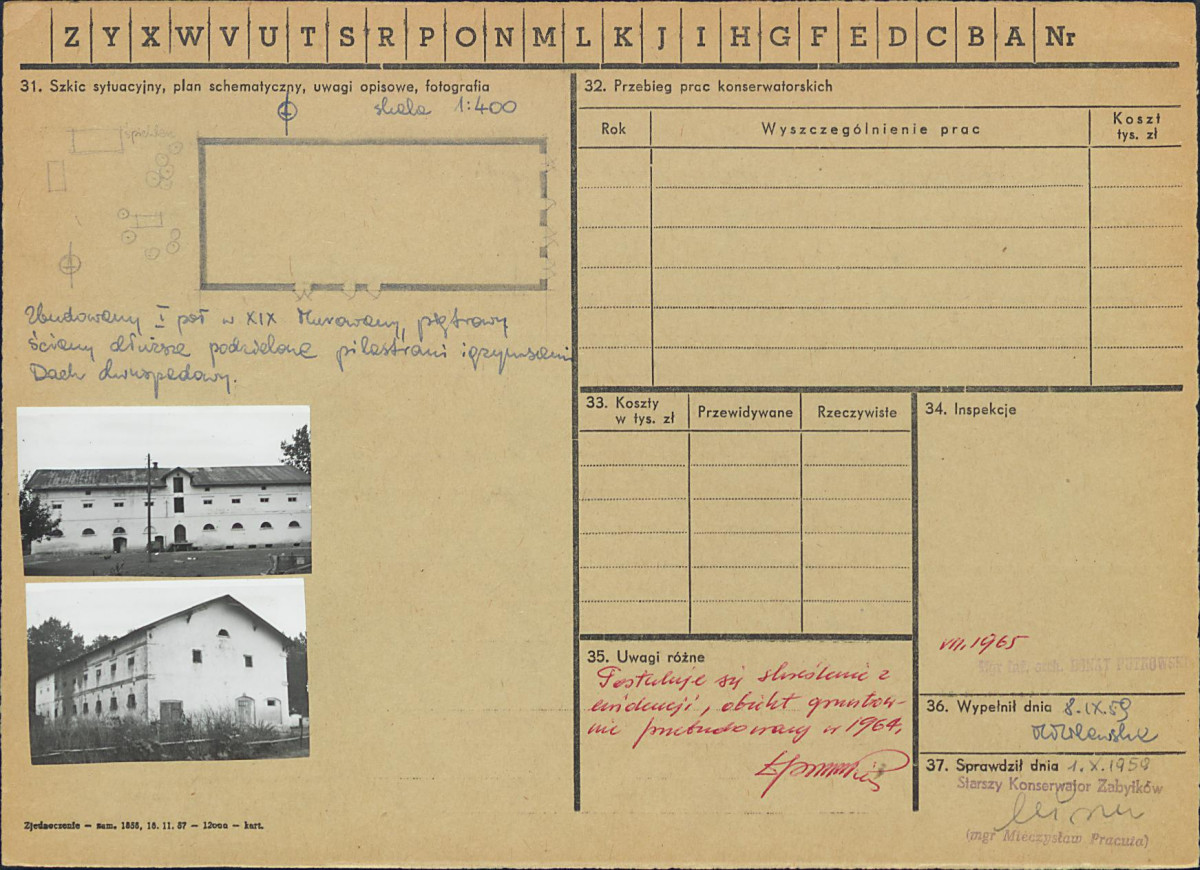 Z Y X W V U T S R P O N M L K J I H G F E D C B A Nr
31. Szkic sytuacyjny, plan schematyczny, uwagi opisowe, fotografia
skala 1:400
spichlerz
Zbudowany I poł w XIX Murowany, piętrowy
ściany dłuższe podzielone pilastrami i gzymsami
Dach dwuspadowy.
Zjednoczenie — zam. 1858, 18. 11. 57 — 12000 — kart.
32. Przebieg prac konserwatorskich
Rok
Wyszczególnienie prac
Koszt
tys. zł
33. Koszty
w tys. zł
Przewidywane
Rzeczywiste
34. Inspekcje
VII. 1965
35. Uwagi różne
Postuluje się skreślenie z
ewidencji, obiekt gruntow-
nie przebudowany w 1964.
36. Wypełnił dnia 8.IX.59
37. Sprawdził dnia 1.X.1959
Starszy Konserwator Zabytków
(mgr Mieczysław Pracuta)